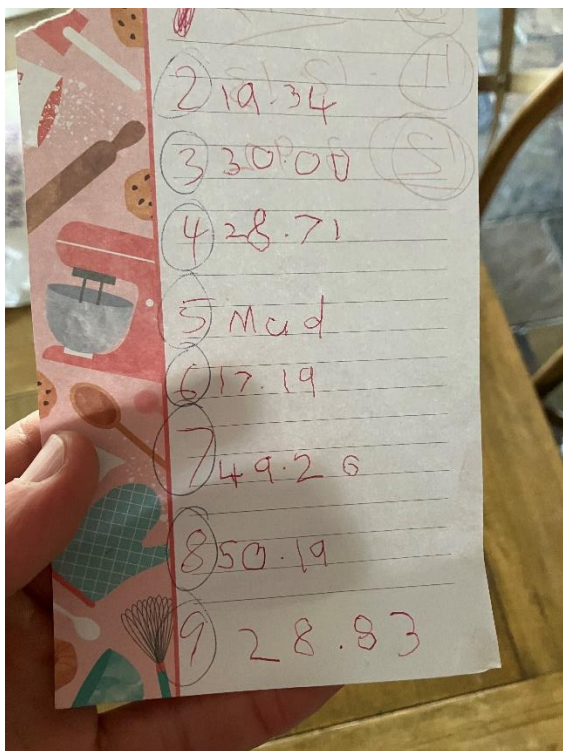 2 19.34
3 30.00
4 28.71
5 Mad
6 17.19
7 49.26
8 50.19
9 28.83